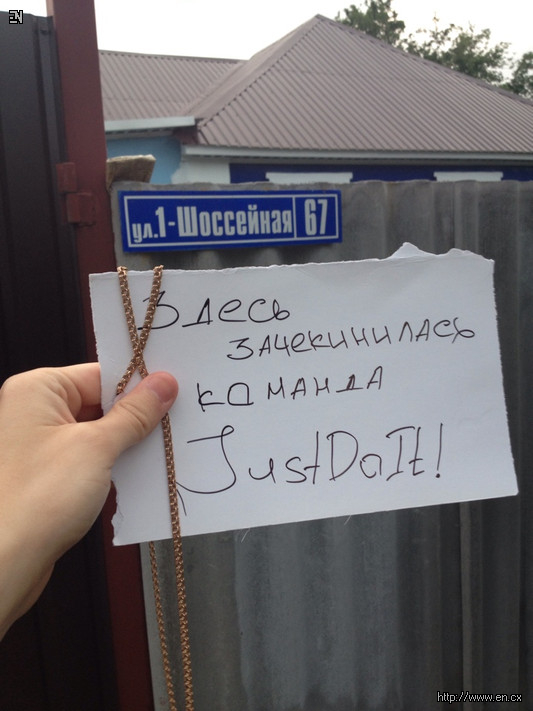 EN
ул.1-Шоссейная 67
Здесь
зачекинилась
команда
JustDoIt!
http://www.en.cx